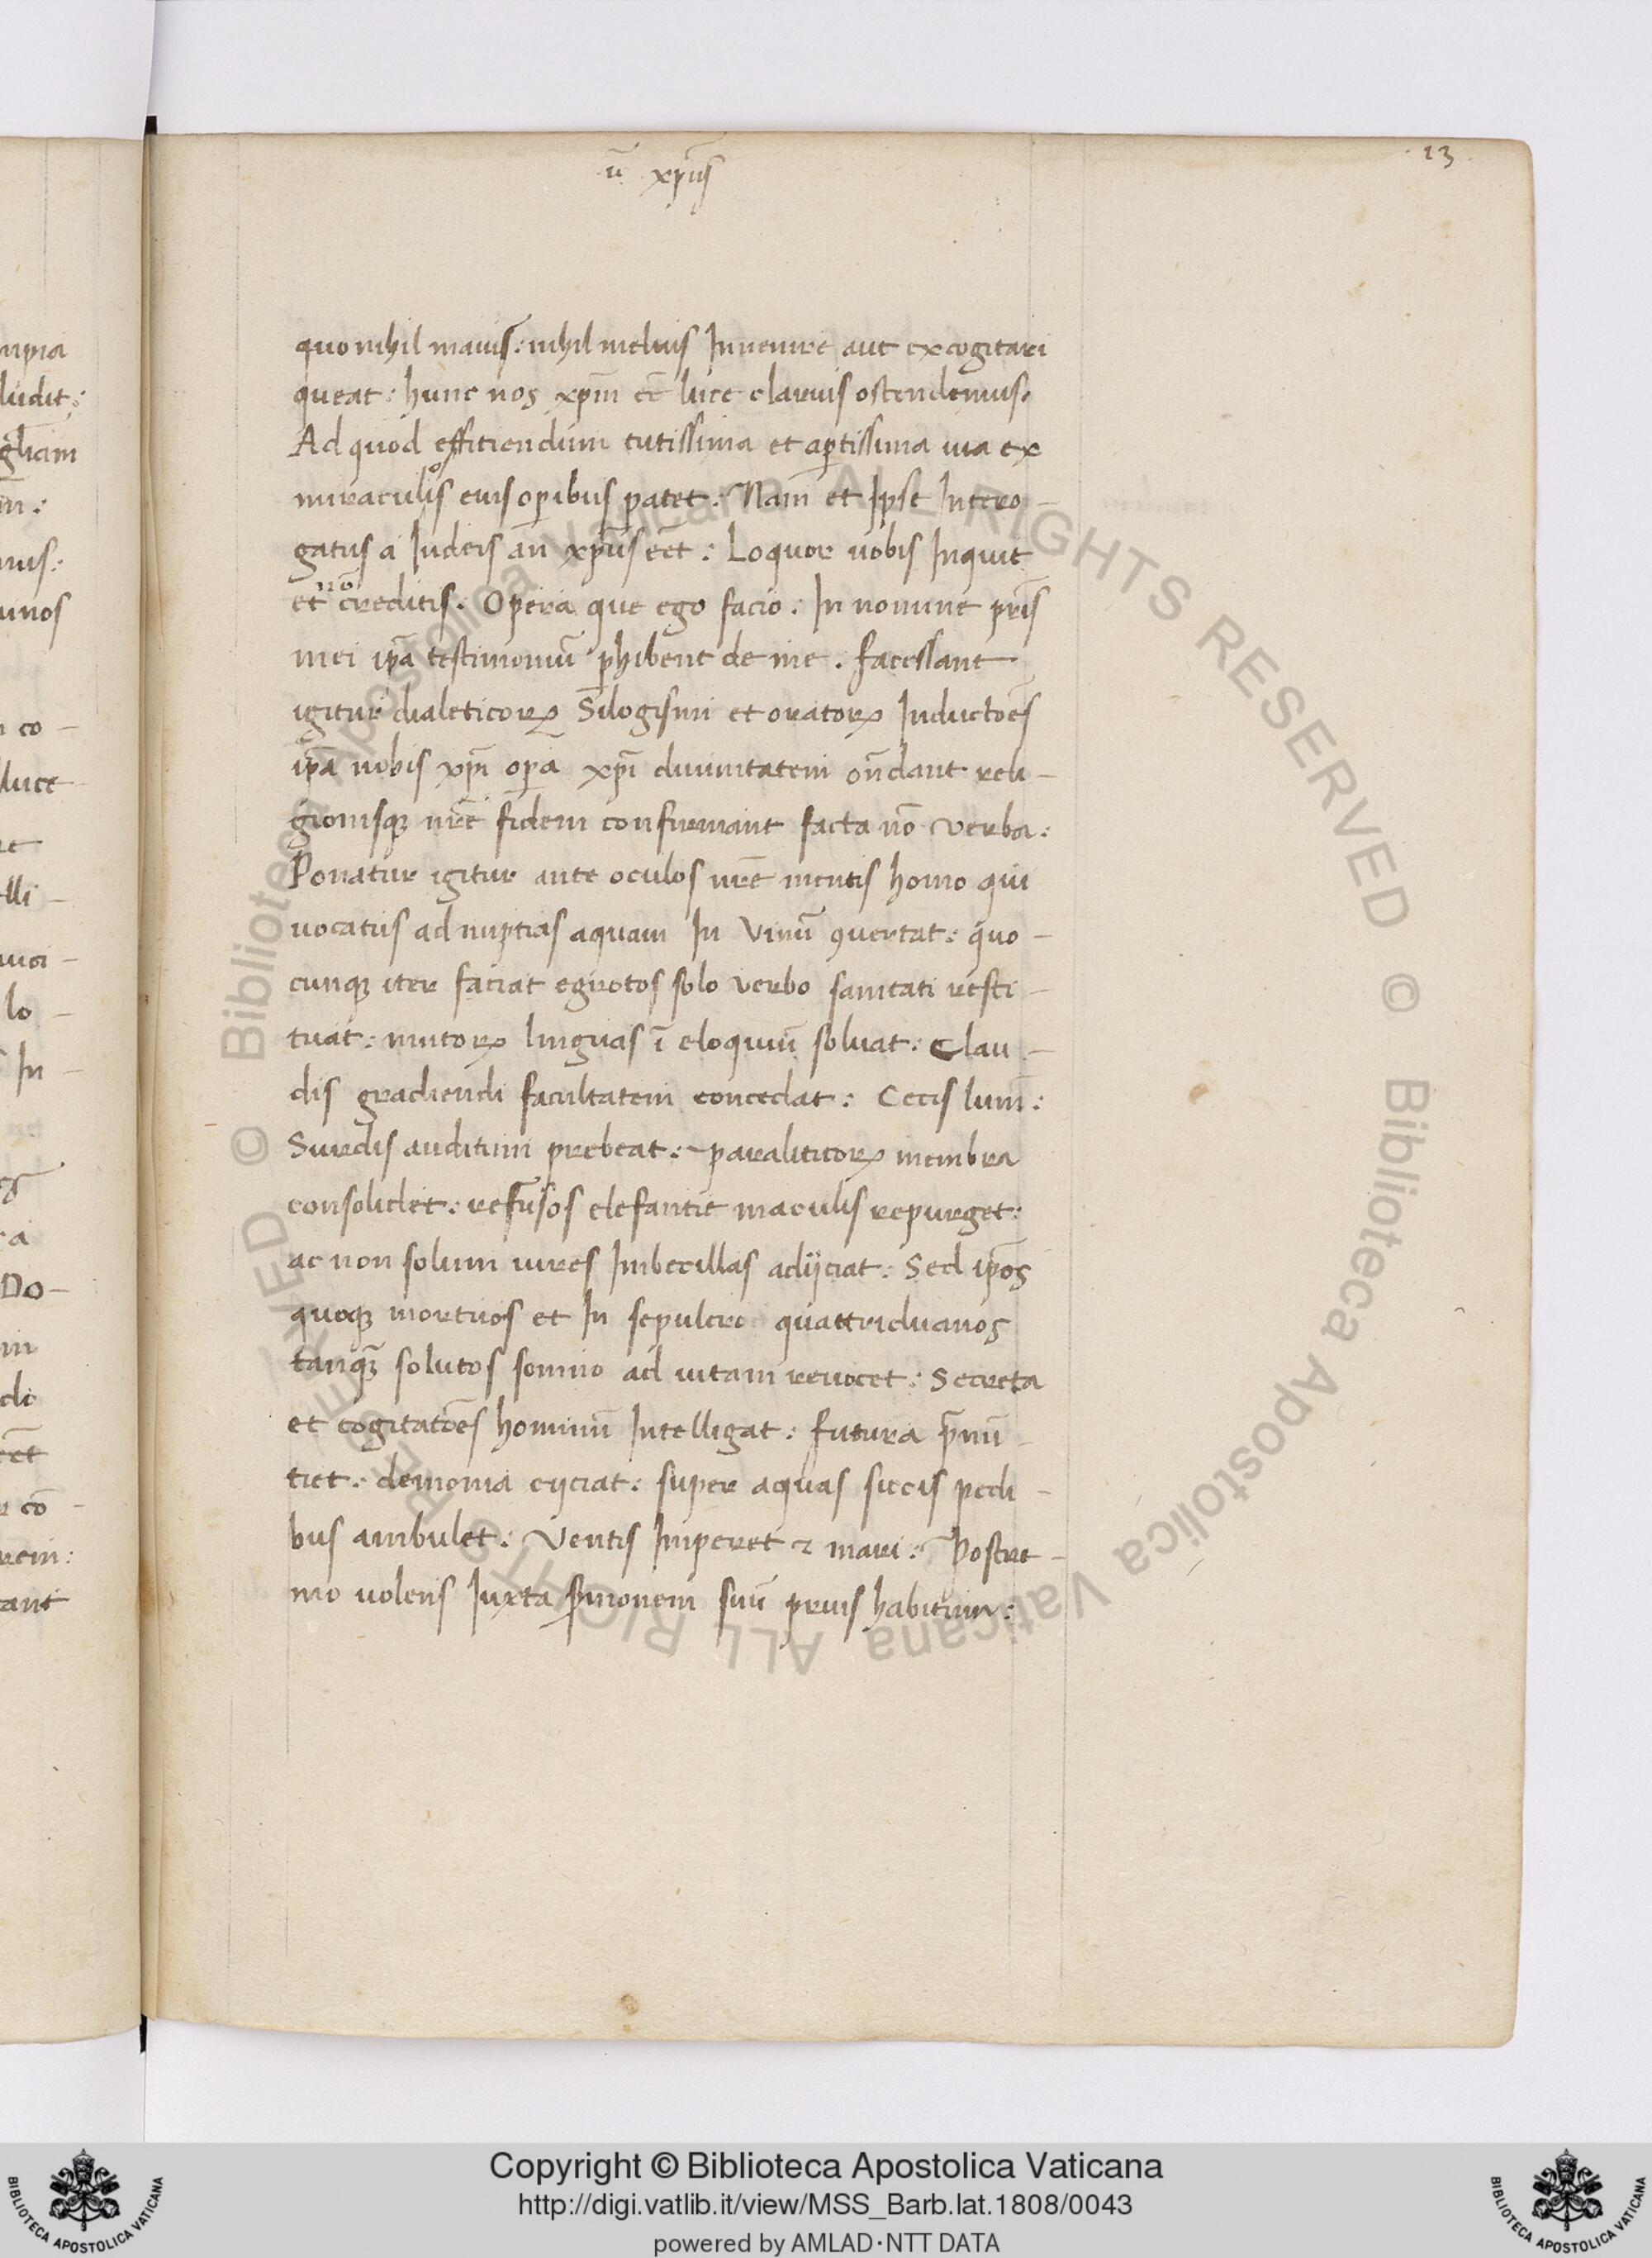 ū xp̄us
13
quo nihil maius: nihil melius Inuenire aut excogitari
queat: hunc nos xp̄m eē luce clarius ostendemus.
Ad quod effitiendum tutissima et ap̱tissima uia ex
miraculis eius op̱ibus patet: Nam et Ipse Intero-
gatus a Iudeis an xp̄us eēt: Loquor uobis Inquit
et nō creditis. Opera que ego facio: In nomine pr̄is
mei ip̄a testimoniū p̱hibent de me. facessant
igitur dialeticorꝝ Silogismi et oratorꝝ Inductōes
ip̄a nobis xp̄i op̱a xp̄i diuinitatem oñdant reli-
gionisqꝫ nr̄e fidem confirmant facta nō verba:
Ponatur igitur ante oculos nr̄e mentis homo qui
uocatus ad nuptias aquam In Vinū ꝯuertat: quo-
cunqꝫ iter faciat egrotos solo verbo sanitati resti-
tuat: mutorꝝ linguas ī eloquiū soluat: Clau-
dis gradiendi facultatem concedat: Cecis lum̄:
Surdis auditum prebeat: paraliticorꝝ membra
consolidet: refusos elefantie maculis repurget:
ac non solum uires Imbecillas adijciat: Sed ip̄os
quoqꝫ mortuos et In sepulcro quattriduanos
tanqꝫ̄ solutos somno ad uitam reuocet: Secreta
et cogitatōes hominū Intelligat: futura p̄nū-
tiet: demonia eijciat: super aquas siccis pedi-
bus ambulet: Ventis Imperet ⁊ mari: Postre-
mo uolens Iuxta s̱monem suū prius habitum:
mpia
ludit:
gliam
unos
co-
luce
lli-
lo-
In-
Do-
di
eēt
cō-
rem:
tant
© Biblioteca Apostolica Vaticana ALL RIGHTS RESERVED © Biblioteca Apostolica Vaticana ALL RIGHTS RESERVED
Copyright © Biblioteca Apostolica Vaticana
http://digi.vatlib.it/view/MSS_Barb.lat.1808/0043
powered by AMLAD·NTT DATA
BIBLIOTECA APOSTOLICA VATICANA
BIBLIOTECA APOSTOLICA VATICANA